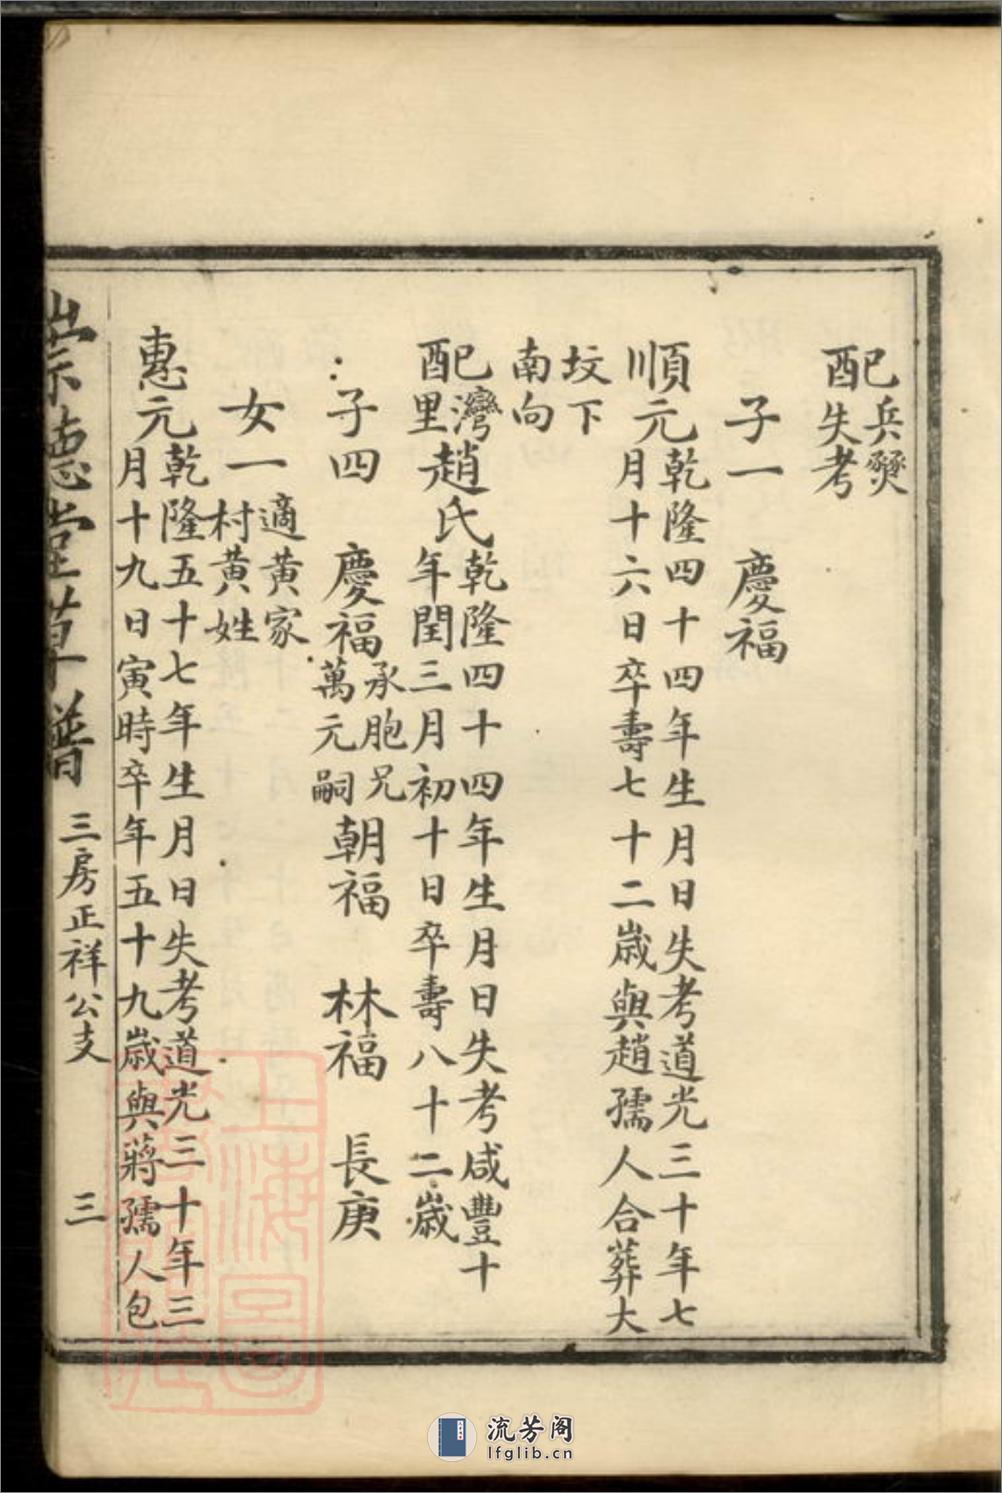 配 已兵燹
失考
子一 慶福
順元 乾隆四十四年生月日失考道光三十年七
月十六日卒壽七十二歲與趙孺人合葬大
坟下
南向
配 巳灣
里 趙氏 乾隆四十四年生月日失考咸豐十
年閏三月初十日卒壽八十二歲
子四 慶福 承胞兄
萬元嗣 朝福 林福 長庚
女一 適黃家
村黃姓
惠元 乾隆五十七年生月日失考道光三十年三
月十九日寅時卒年五十九歲與蔣孺人包
崇德堂草譜 三房正祥公支 三
上海圖書館藏
流芳阁
lfglib.cn